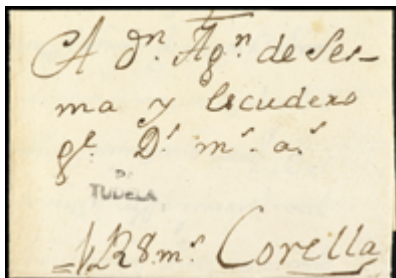 A Dn. Agn. de Ses-
ma y Escudero
ge. Ds. ms. as.
D.
TUDELA
Corella